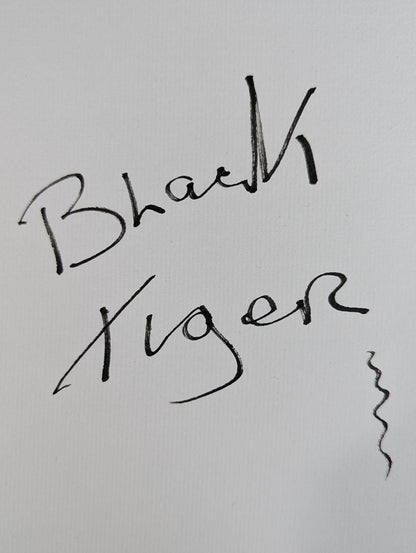 Black
Tiger